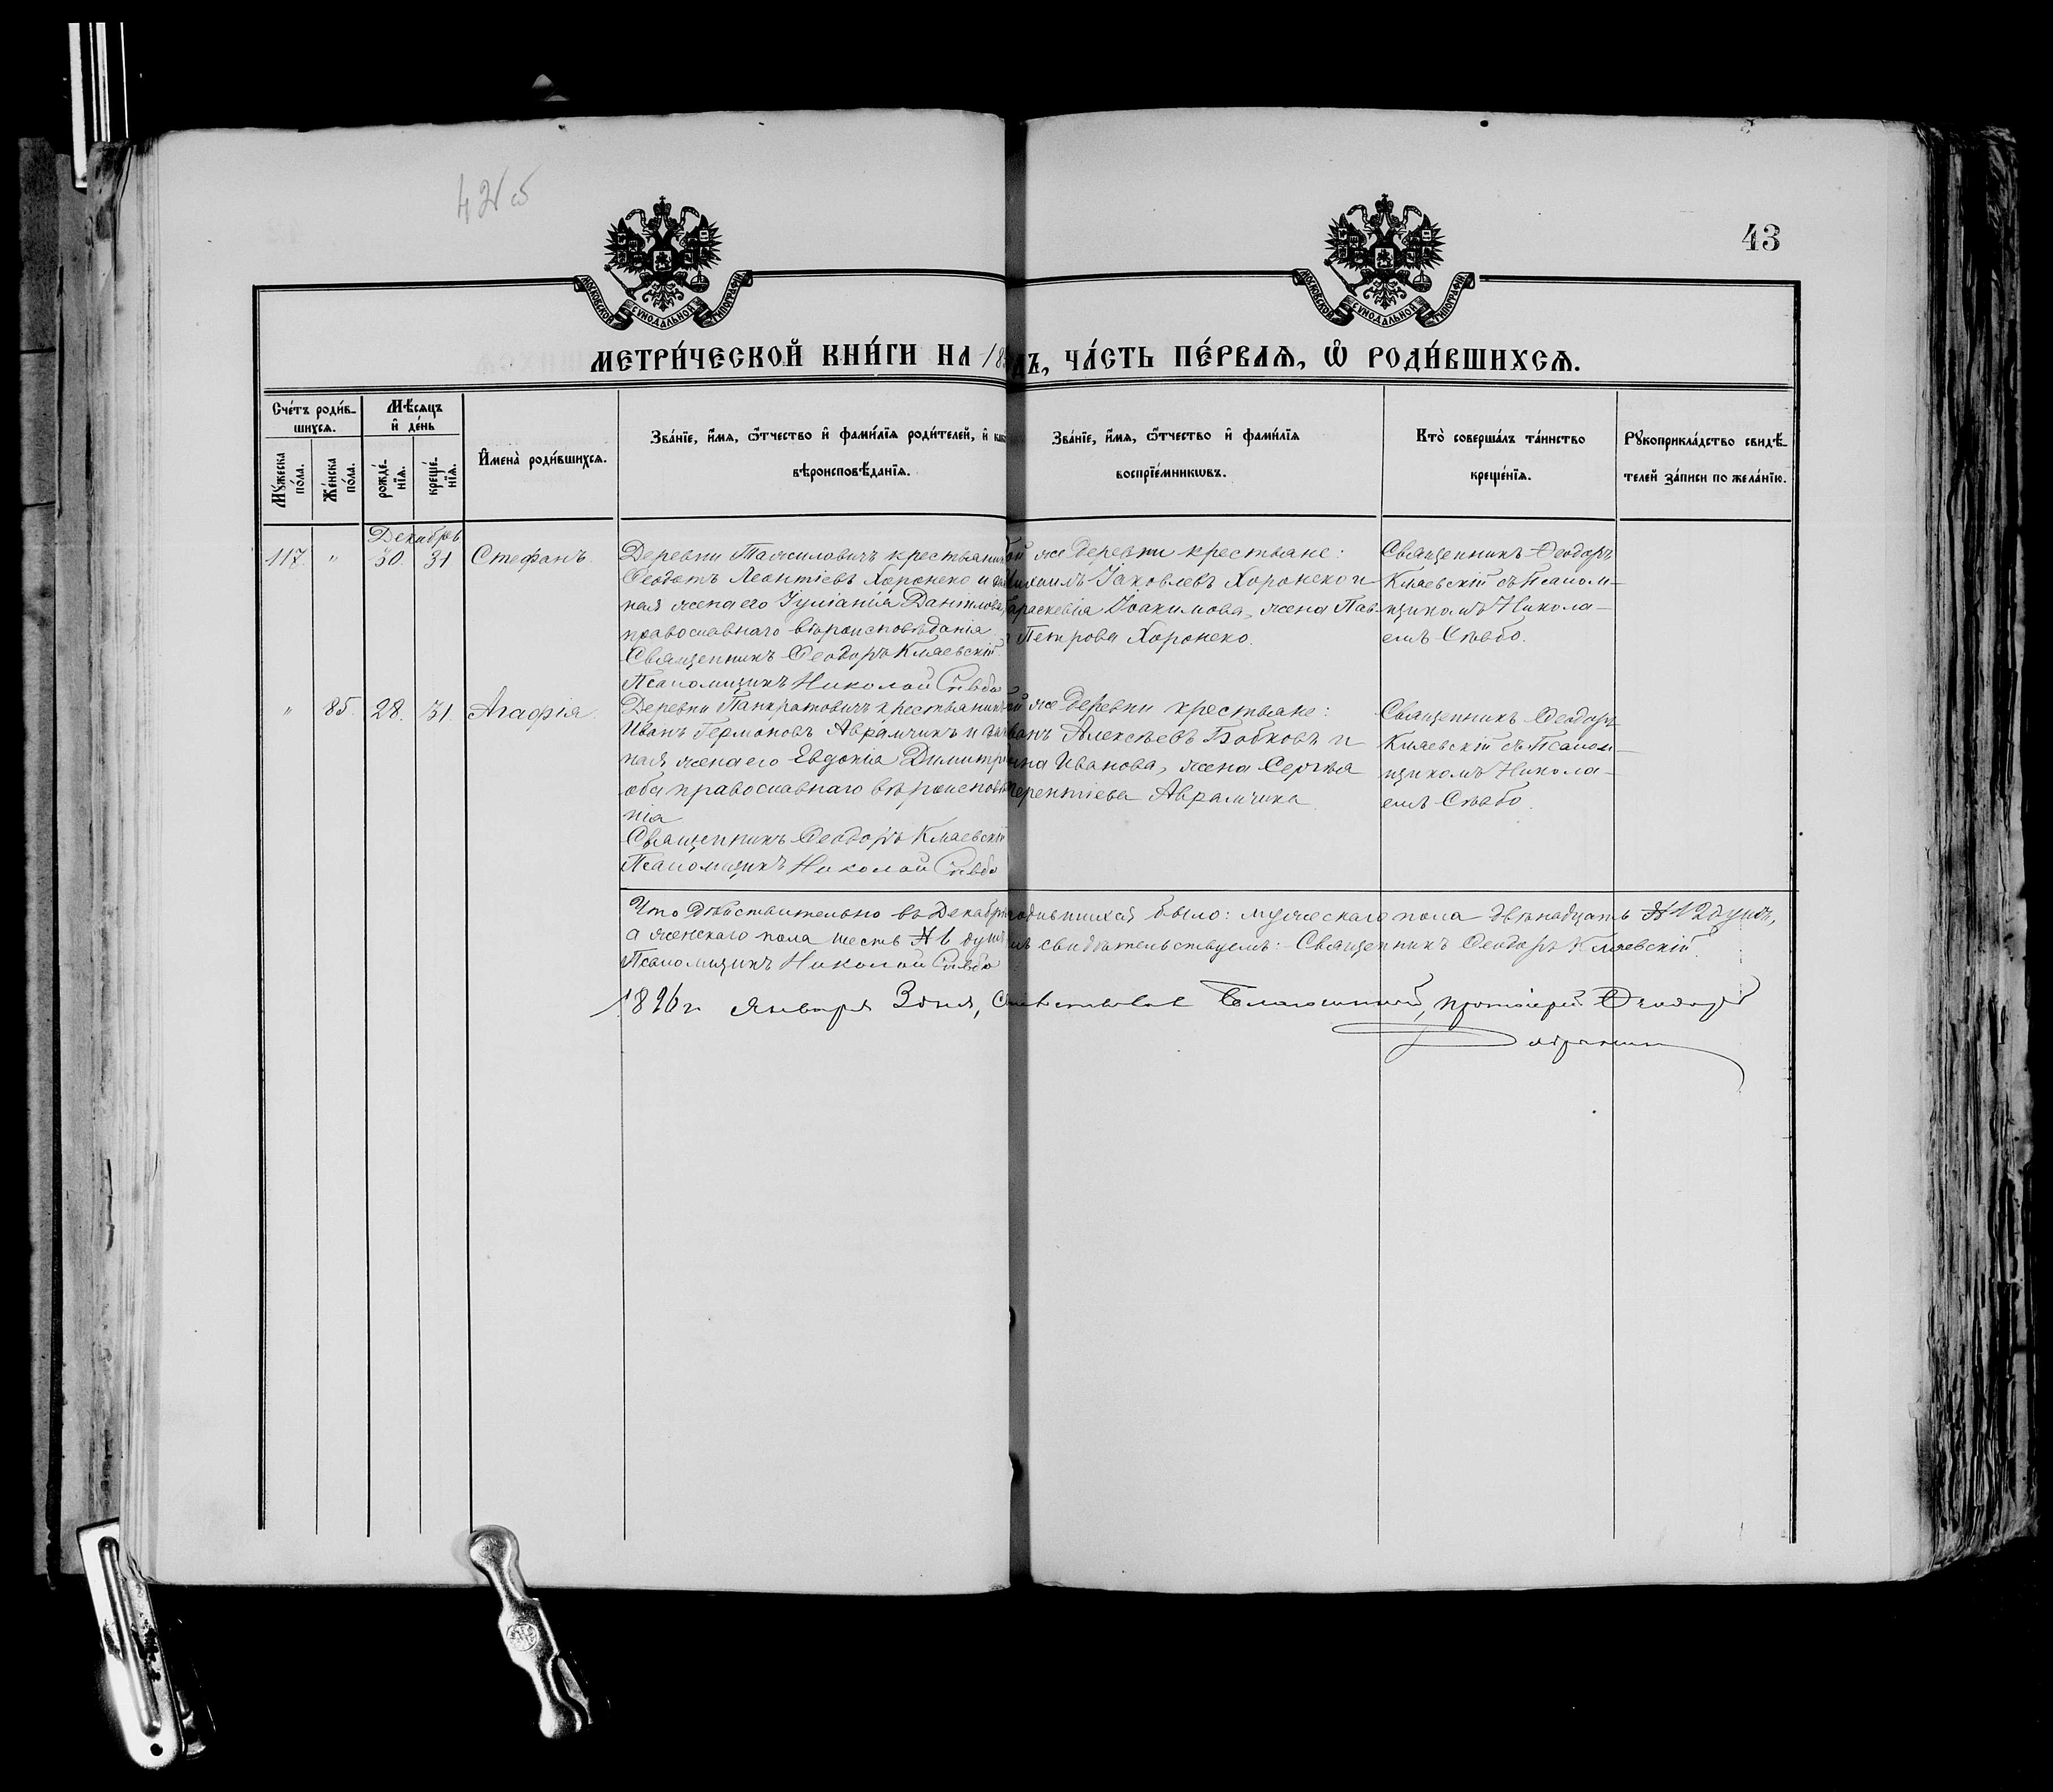 42об
43
МОСКОВСКОЙ СУНОДАЛЬНОЙ ТИПОГРАФІИ
МОСКОВСКОЙ СУНОДАЛЬНОЙ ТИПОГРАФІИ
МЕТРИ́ЧЕСКОЙ КНИ́ГИ НА 18 ДЪ, ЧА́СТЬ ПЕ́РВАЯ, Ѡ҆ РОДИ́ВШИХСЯ.
Сче́тъ роди́в-
шихся.
Мѣ́сяцъ
и҆ де́нь
Мꙋ́жеска
по́ла.
Же́нска
по́ла.
рожде́-
нїя.
креще́-
нїя.
И҆мена̀ роди́вшихся.
Зва́нїе, и҆́мя, ѻ҆́тчество и҆ фами́лїя роди́телей, и҆
вѣроисповѣ́данїя.
Зва́нїе, и҆́мя, ѻ҆́тчество и҆ фами́лїя
воспрїе́мникѡвъ.
Кто̀ соверша́лъ та́инство
креще́нїя.
Рꙋкоприкла́дство свидѣ́-
телей за́писи по жела́нїю.
Декабрь
117. " 30. 31 Стефанъ.
Деревни крестьянинъ
Ѳеодотъ Леонтіевъ Хоронеко и
ная жена его Іуліанія Данілова,
православнаго вѣроисповѣданія
Священникъ Ѳеодоръ Кмаевскій
Псаломщикъ Николай Сѣвбо
ой же деревни крестьяне:
Михаилъ Іаковлевъ Хоронеко и
Параскевія Іоакимова, жена Пав-
Петрова Хоронеко.
Священникъ Ѳеодоръ
Кмаевскій съ Псалом-
щикомъ Никола-
емъ Сѣвбо.
" 85. 28. 31. Агафія.
Деревни Панкратовичъ крестьянинъ
Иванъ Германовъ Аврамчикъ и
ная жена его Евдокія Димитр
оба православнаго вѣроисповѣ
нія
Священникъ Ѳеодоръ Кмаевскій
Псаломщикъ Николай Сѣвбо
ой же деревни крестьяне:
Иванъ Алексѣевъ Бобковъ и
Иванова, жена Сергѣя
Терентіева Аврамчика
Священникъ Ѳеодоръ
Кмаевскій съ Псалом-
щикомъ Никола-
емъ Сѣвбо.
Что дѣйствительно въ Декабрѣ родившихся было: мужескаго пола двѣнадцать № 12 душъ,
а женскаго пола шесть № 6 душъ свидѣтельствуемъ: Священникъ Ѳеодоръ Кмаевскій.
Псаломщикъ Николай Сѣвбо
1896 г. Января 3 дня, Благочинный, протоіерей Ѳеодоръ